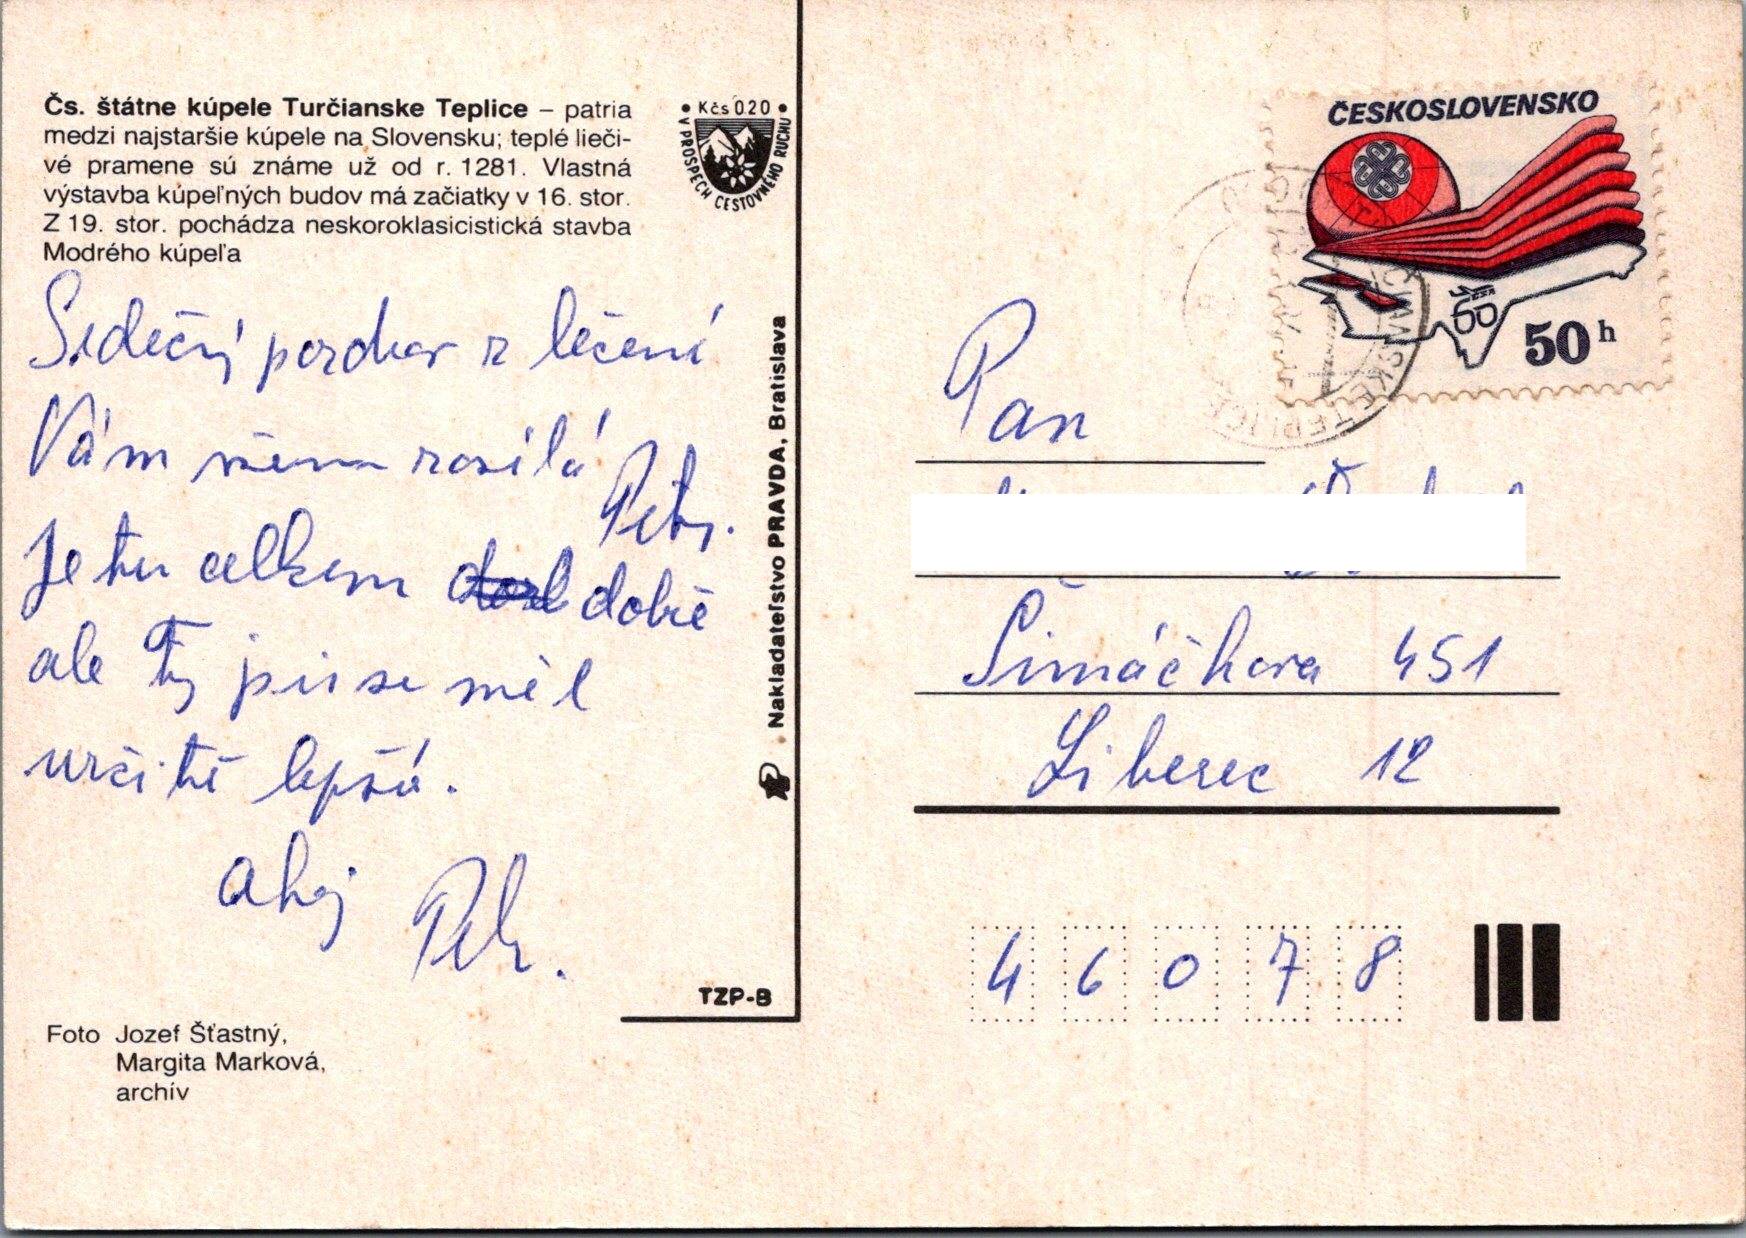 Čs. štátne kúpele Turčianske Teplice – patria
medzi najstaršie kúpele na Slovensku; teplé lieči-
vé pramene sú známe už od r. 1281. Vlastná
výstavba kúpeľných budov má začiatky v 16. stor.
Z 19. stor. pochádza neskoroklasicistická stavba
Modrého kúpeľa
• Kčs 0.20 •
V PROSPECH CESTOVNÉHO RUCHU
Srdečný pozdrav z léčení
Vám všem zasílá
Petr.
Je tu celkem dobře
ale Ty jsi se měl
určitě lepšá.
ahoj
Petr.
Foto Jozef Šťastný,
Margita Marková,
archív
TZP-B
Nakladateľstvo PRAVDA, Bratislava
ČESKOSLOVENSKO
60
50 h
TEPLICE
Pan
Šimáčkova 451
Liberec 12
46078